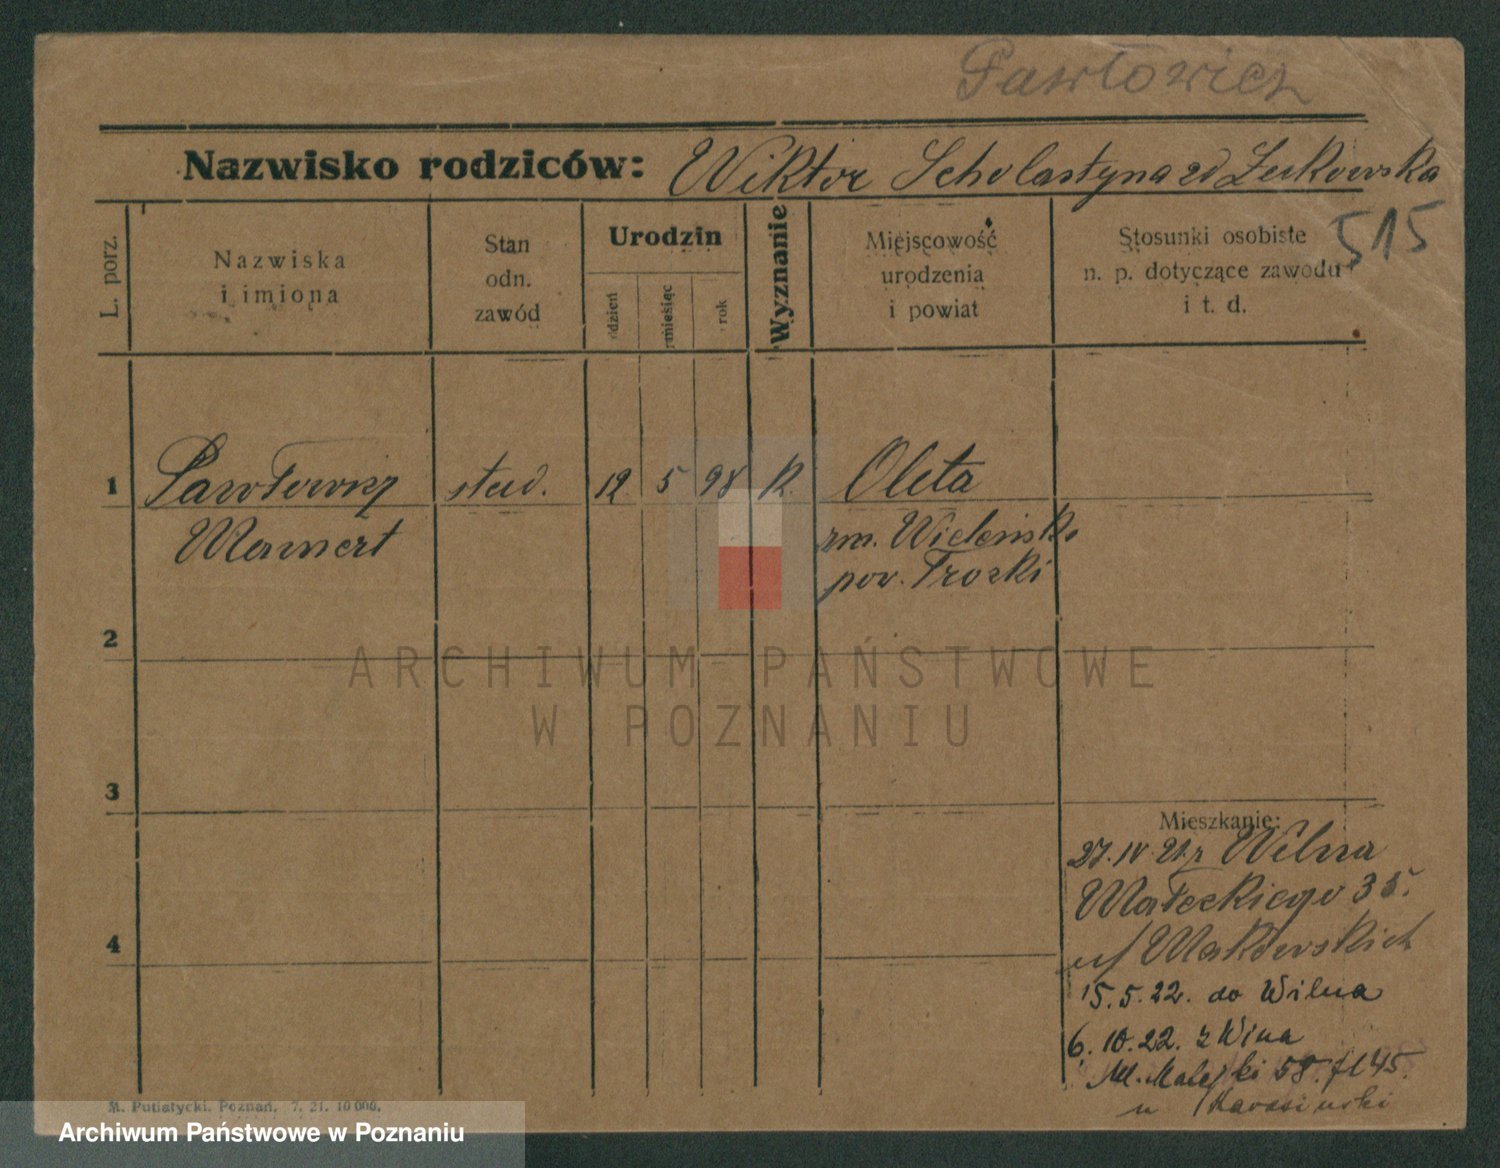 Pawłowicz
Nazwisko rodziców: Wiktor Scholastyna zd Żukowska
515
L. porz.
Nazwiska
i imiona
Stan
odn.
zawód
Urodzin
dzień
miesiąc
rok
Wyznanie
Miejscowość
urodzenia
i powiat
Stosunki osobiste
n. p. dotyczące zawodu
i t. d.
1 Pawłowicz stud. 12 5 98 K. Oleta
Mamert zm. Wileńsk.
pow. Trocki
2
3
4
Mieszkanie:
27.IV.21. z Wilna
Małeckiego 35.
u/ Makowskich
15.5.22. do Wilna
6.10.22. z Wina
Matejki 58.
u
M. Putiatycki, Poznań, 7. 21. 10 000.
ARCHIWUM PAŃSTWOWE
W POZNANIU
Archiwum Państwowe w Poznaniu